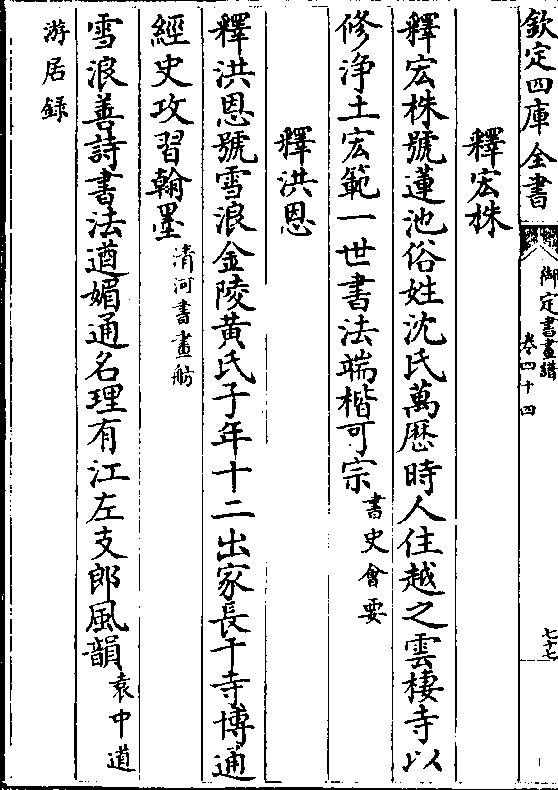 欽定四庫全書
御定書畫譜
卷四十四
七十七
釋宏株
釋宏株號蓮池俗姓沈氏萬歷時人住越之雲棲寺以
修浄土宏範一世書法端楷可宗書史會要
釋洪恩
釋洪恩號雪浪金陵黄氏子年十二出家長干寺博通
經史攻習翰墨清河書畫舫
雪浪善詩書法遒媚通名理有江左支郎風韻袁中道
游居録